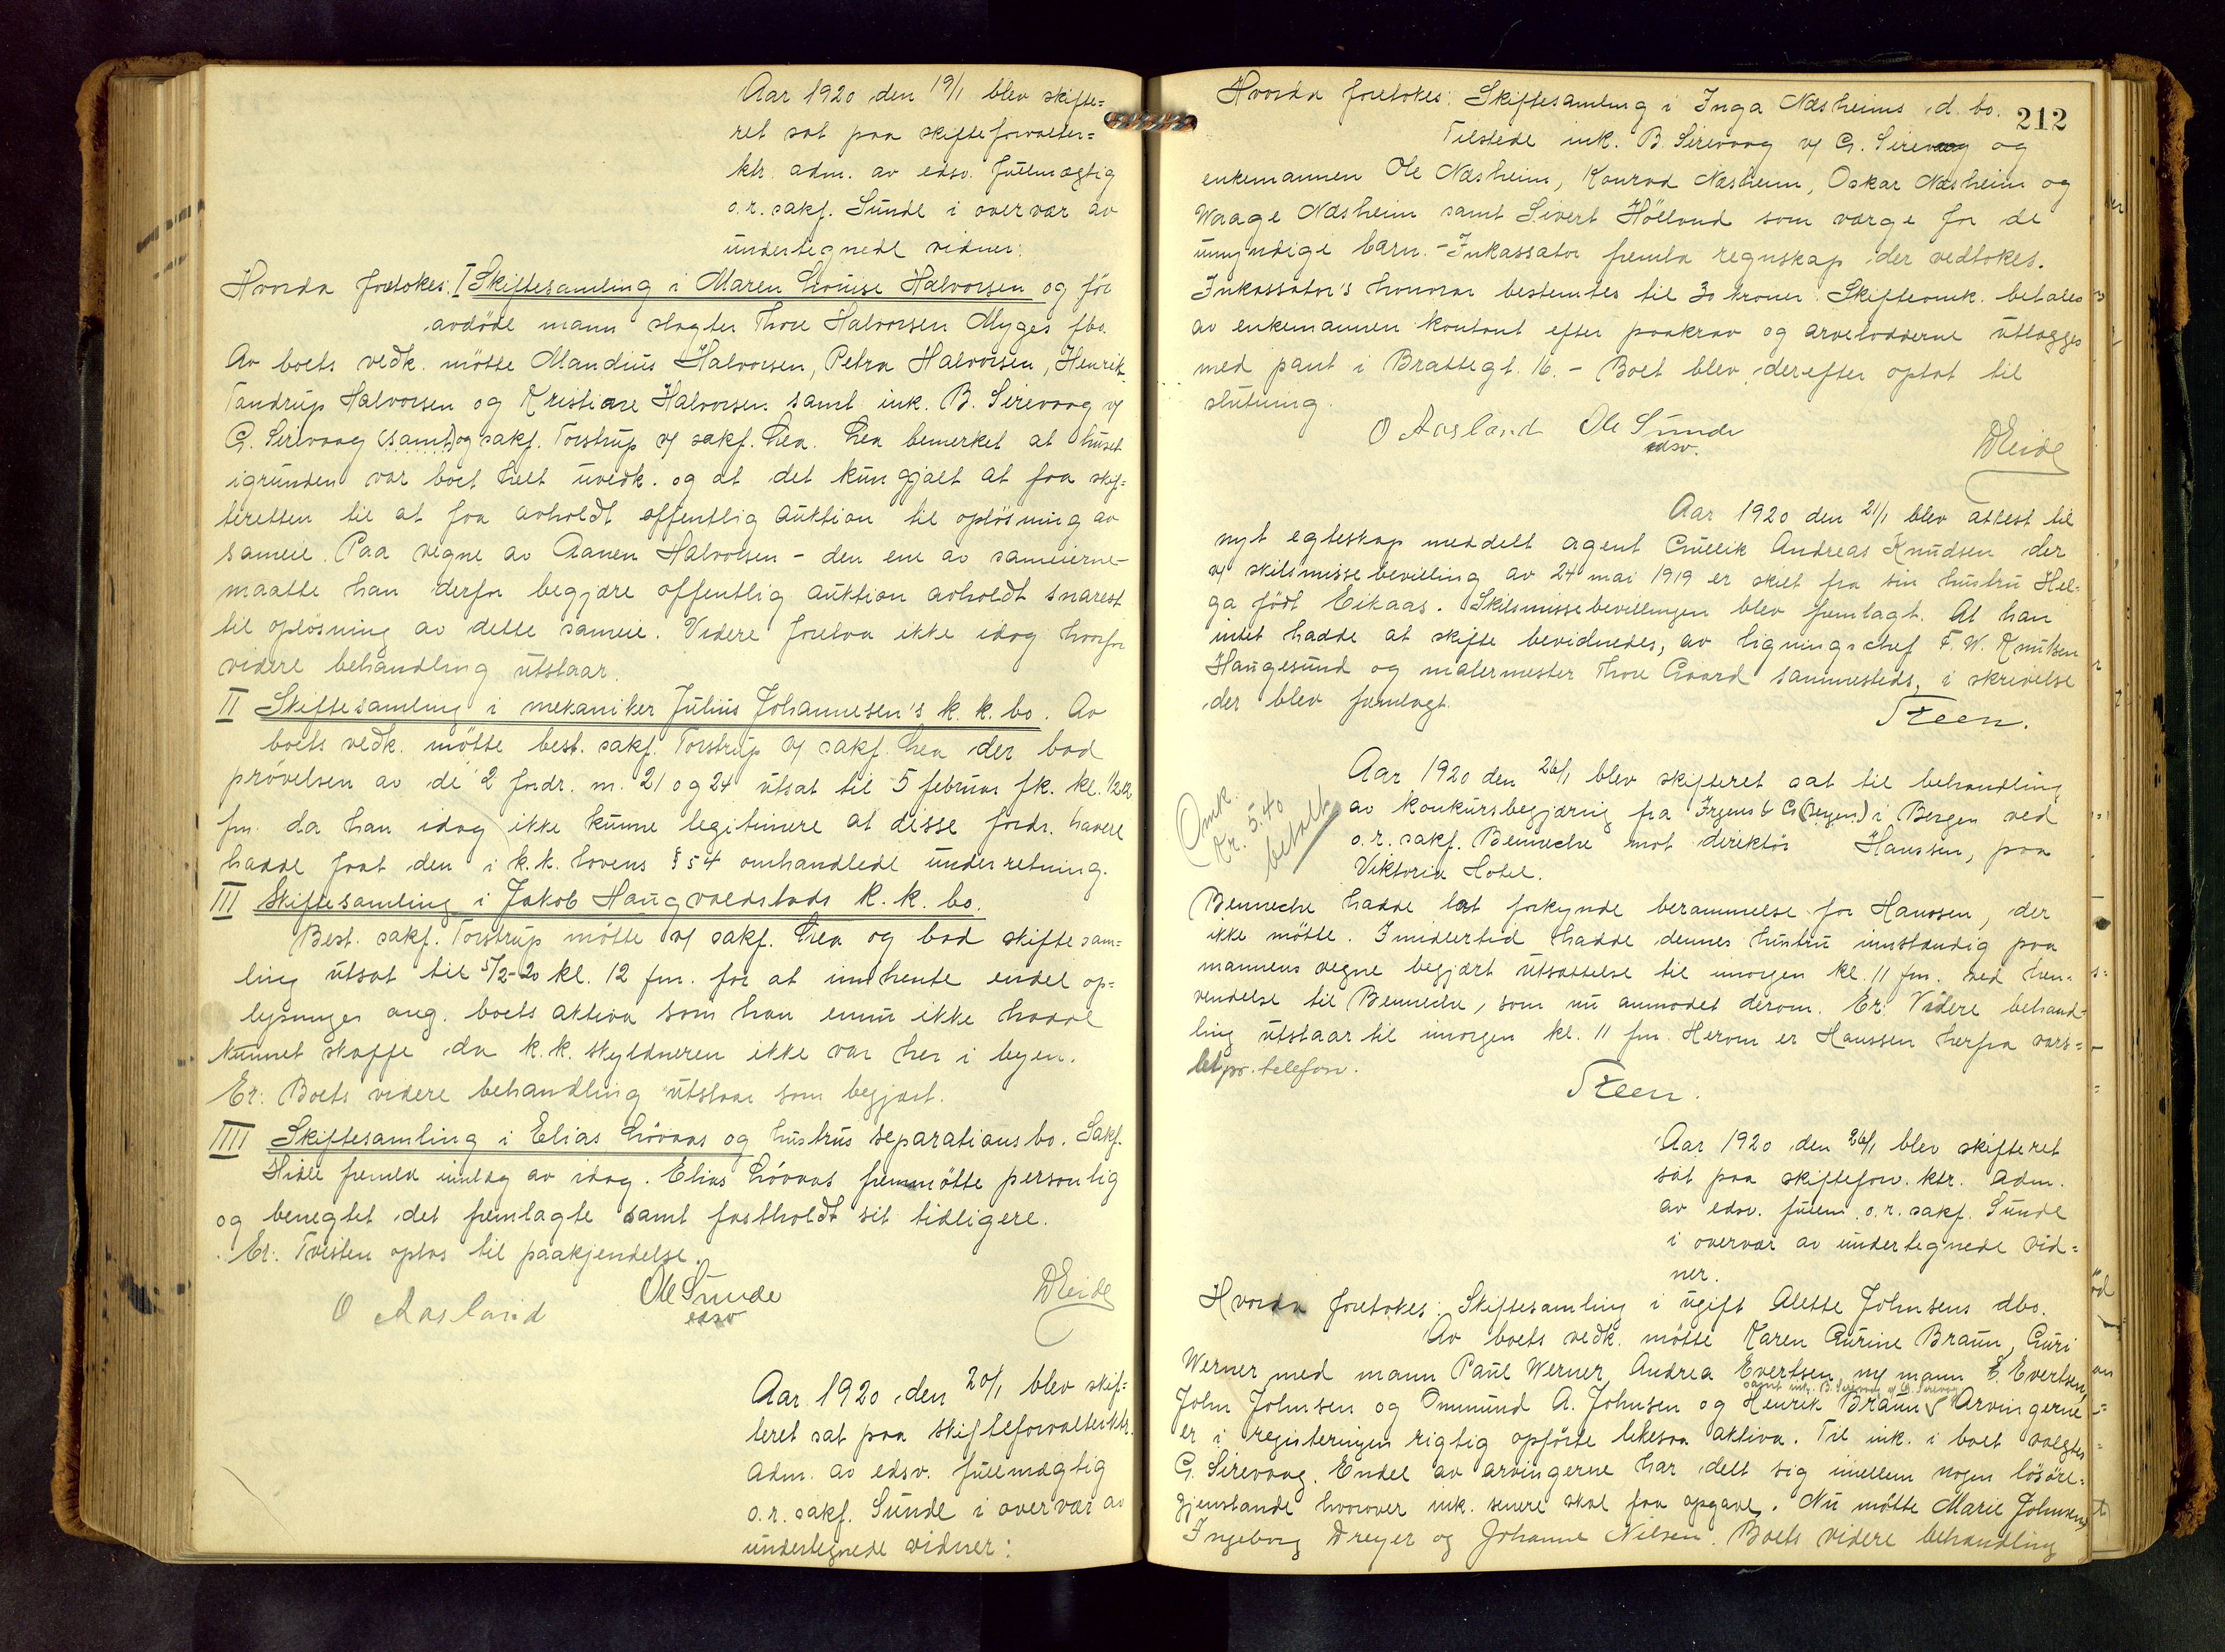 Aar 1920 den 19/1 blev skifte=
ret sat paa skifteforvalter=
ktr. adm. av edsv. fullmægtig
o.r. sakf. Sunde i overvær av
undertegnede vidner:
Hvorda foretokes: I Skiftesamling i Maren Louise Halvorsen og før
avdöde mann slagter Thore Halvorsen Myges fbo.
Av boets vedk. mötte Mandius Halvorsen, Petra Halvorsen, Henrik
Tandrup Halvorsen og Kristiane Halvorsen samt ink. B. Sirevaag v/
G. Sirevaag (samt) og sakf. Torstrup v/ sakf. Lea. Lea bemerket at huset
igrunden var boet helt uvedk. og at det kun gjalt at faa skif=
teretten til at faa avholdt offentlig auktion til oplösning av
sameie. Paa vegne av Aanen Halvorsen - den ene av sameierne -
maatte han derfor begjære offentlig auktion avholdt snarest
til oplösning av dette sameie. Videre forelaa ikke idag hvorfor
videre behandling utstaar.
II Skiftesamling i mekaniker Julius Johannesen's k. k. bo. Av
boets vedk. mötte best. sakf. Torstrup v/ sakf. Lea der bad
prövelsen av de 2 fordr. nr. 21 og 24 utsat til 5 februar fk. kl. 1/2 12
fm. da han idag ikke kunne legitimere at disse fordr. havere
hadde faat den i k.k. lovens § 54 omhandlede underretning.
III Skiftesamling i Jakob Haugvaldstads k. k. bo.
Best. sakf. Torstrup mötte v/ sakf. Lea og bad skiftesam=
ling utsat til 5/2-20 kl. 12 fm. for at innhente endel op=
lysninger ang. boets aktiva som han ennu ikke hadde
kunnet skaffe da k.k. skyldneren ikke var her i byen.
Er: Boets videre behandling utstaar som begjært.
IIII Skiftesamling i Elias Lövaas og hustrus separationsbo. Sakf.
Hidle fremla innlæg av idag. Elias Lövaas fremmötte personlig
og benegtet det fremlagte samt fastholdt sit tidligere.
Er: Tvisten optas til paakjendelse.
O Aasland Ole Sunde edsv DEide
Aar 1920 den 20/1 blev skif=
teret sat paa skifteforvalterktr.
adm. av edsv. fullmægtig
o.r. sakf. Sunde i overvær av
undertegnede vidner:
212
Hvorda foretokes: Skiftesamling i Inga Næsheims d. bo.
Tilstede ink. B. Sirevaag v/ G. Sirevaag og
enkemannen Ole Næsheim, Konrad Næsheim, Oskar Næsheim og
Waage Næsheim samt Sivert Hölland som værge for de
umyndige barn. - Inkassator fremla regnskap der vedtokes.
Inkassator's honorar bestemtes til 30 kroner. Skifteomk. betales
av enkemannen kontant efter paakrav og arvelodderne utlægges
med pant i Brattegt. 16. - Boet blev derefter optat til
slutning.
O Aasland Ole Sunde edsv. DEide
Aar 1920 den 21/1 blev attest til
nyt egteskap meddelt agent Gullik Andreas Knudsen der
v/ skilsmissebevilling av 24 mai 1919 er skilt fra sin hustru Hel=
ga født Eikaas. Skilsmissebevillingen blev fremlagt. At han
intet hadde at skifte bevidnedes, av ligningschef F. W. Knutsen
Haugesund og malermester Thore Gaard sammesteds, i skrivelse
der blev fremlagt.
Steen.
Omk.
kr. 5.40
betalt
Aar 1920 den 26/1 blev skifteret sat til behandling
av konkursbegjæring fra Irgens & Co (Bergen) i Bergen ved
o.r. sakf. Benneche mot direktör Hanssen, paa
Viktoria Hotel.
Benneche hadde latt forkynde berammelse for Hanssen, der
ikke mötte. Imidlertid hadde dennes hustru innstændig paa
mannens vegne begjært utsættelse til imorgen kl. 11 fm. ved hen=
vendelse til Benneche, som nu anmodet derom. Er: Videre behand=
ling utstaar til imorgen kl. 11 fm. Herom er Hanssen herfra vars=
let pr. telefon.
Steen.
Aar 1920 den 26/1 blev skifteret
sat paa skifteforv. ktr. adm.
av edsv. fullm. o.r. sakf. Sunde
i overvær av undertegnede vid=
ner.
Hvorda foretokes: Skiftesamling i ugift Alette Johnsens dbo.
Av boets vedk. mötte Karen Gurine Braun, Guri
Werner med mann Paul Werner, Andrea Evertsen m/ mann E. Evertsen,
samt ink. B. Sirevaag v/ G. Sirevaag
John Johnsen og Ommund A. Johnsen og Henrik Braun. Arvingerne
er i registeringen rigtig opförte likesaa aktiva. Til ink. i boet valgtes
G. Sirevaag. Endel av arvingerne har delt sig imellem nogen lösöre=
gjenstande hvorover ink. senere skal faa opgave. Nu mötte Marie Johnsen,
Ingeborg Dreyer og Johanne Nilsen. Boets videre behandling